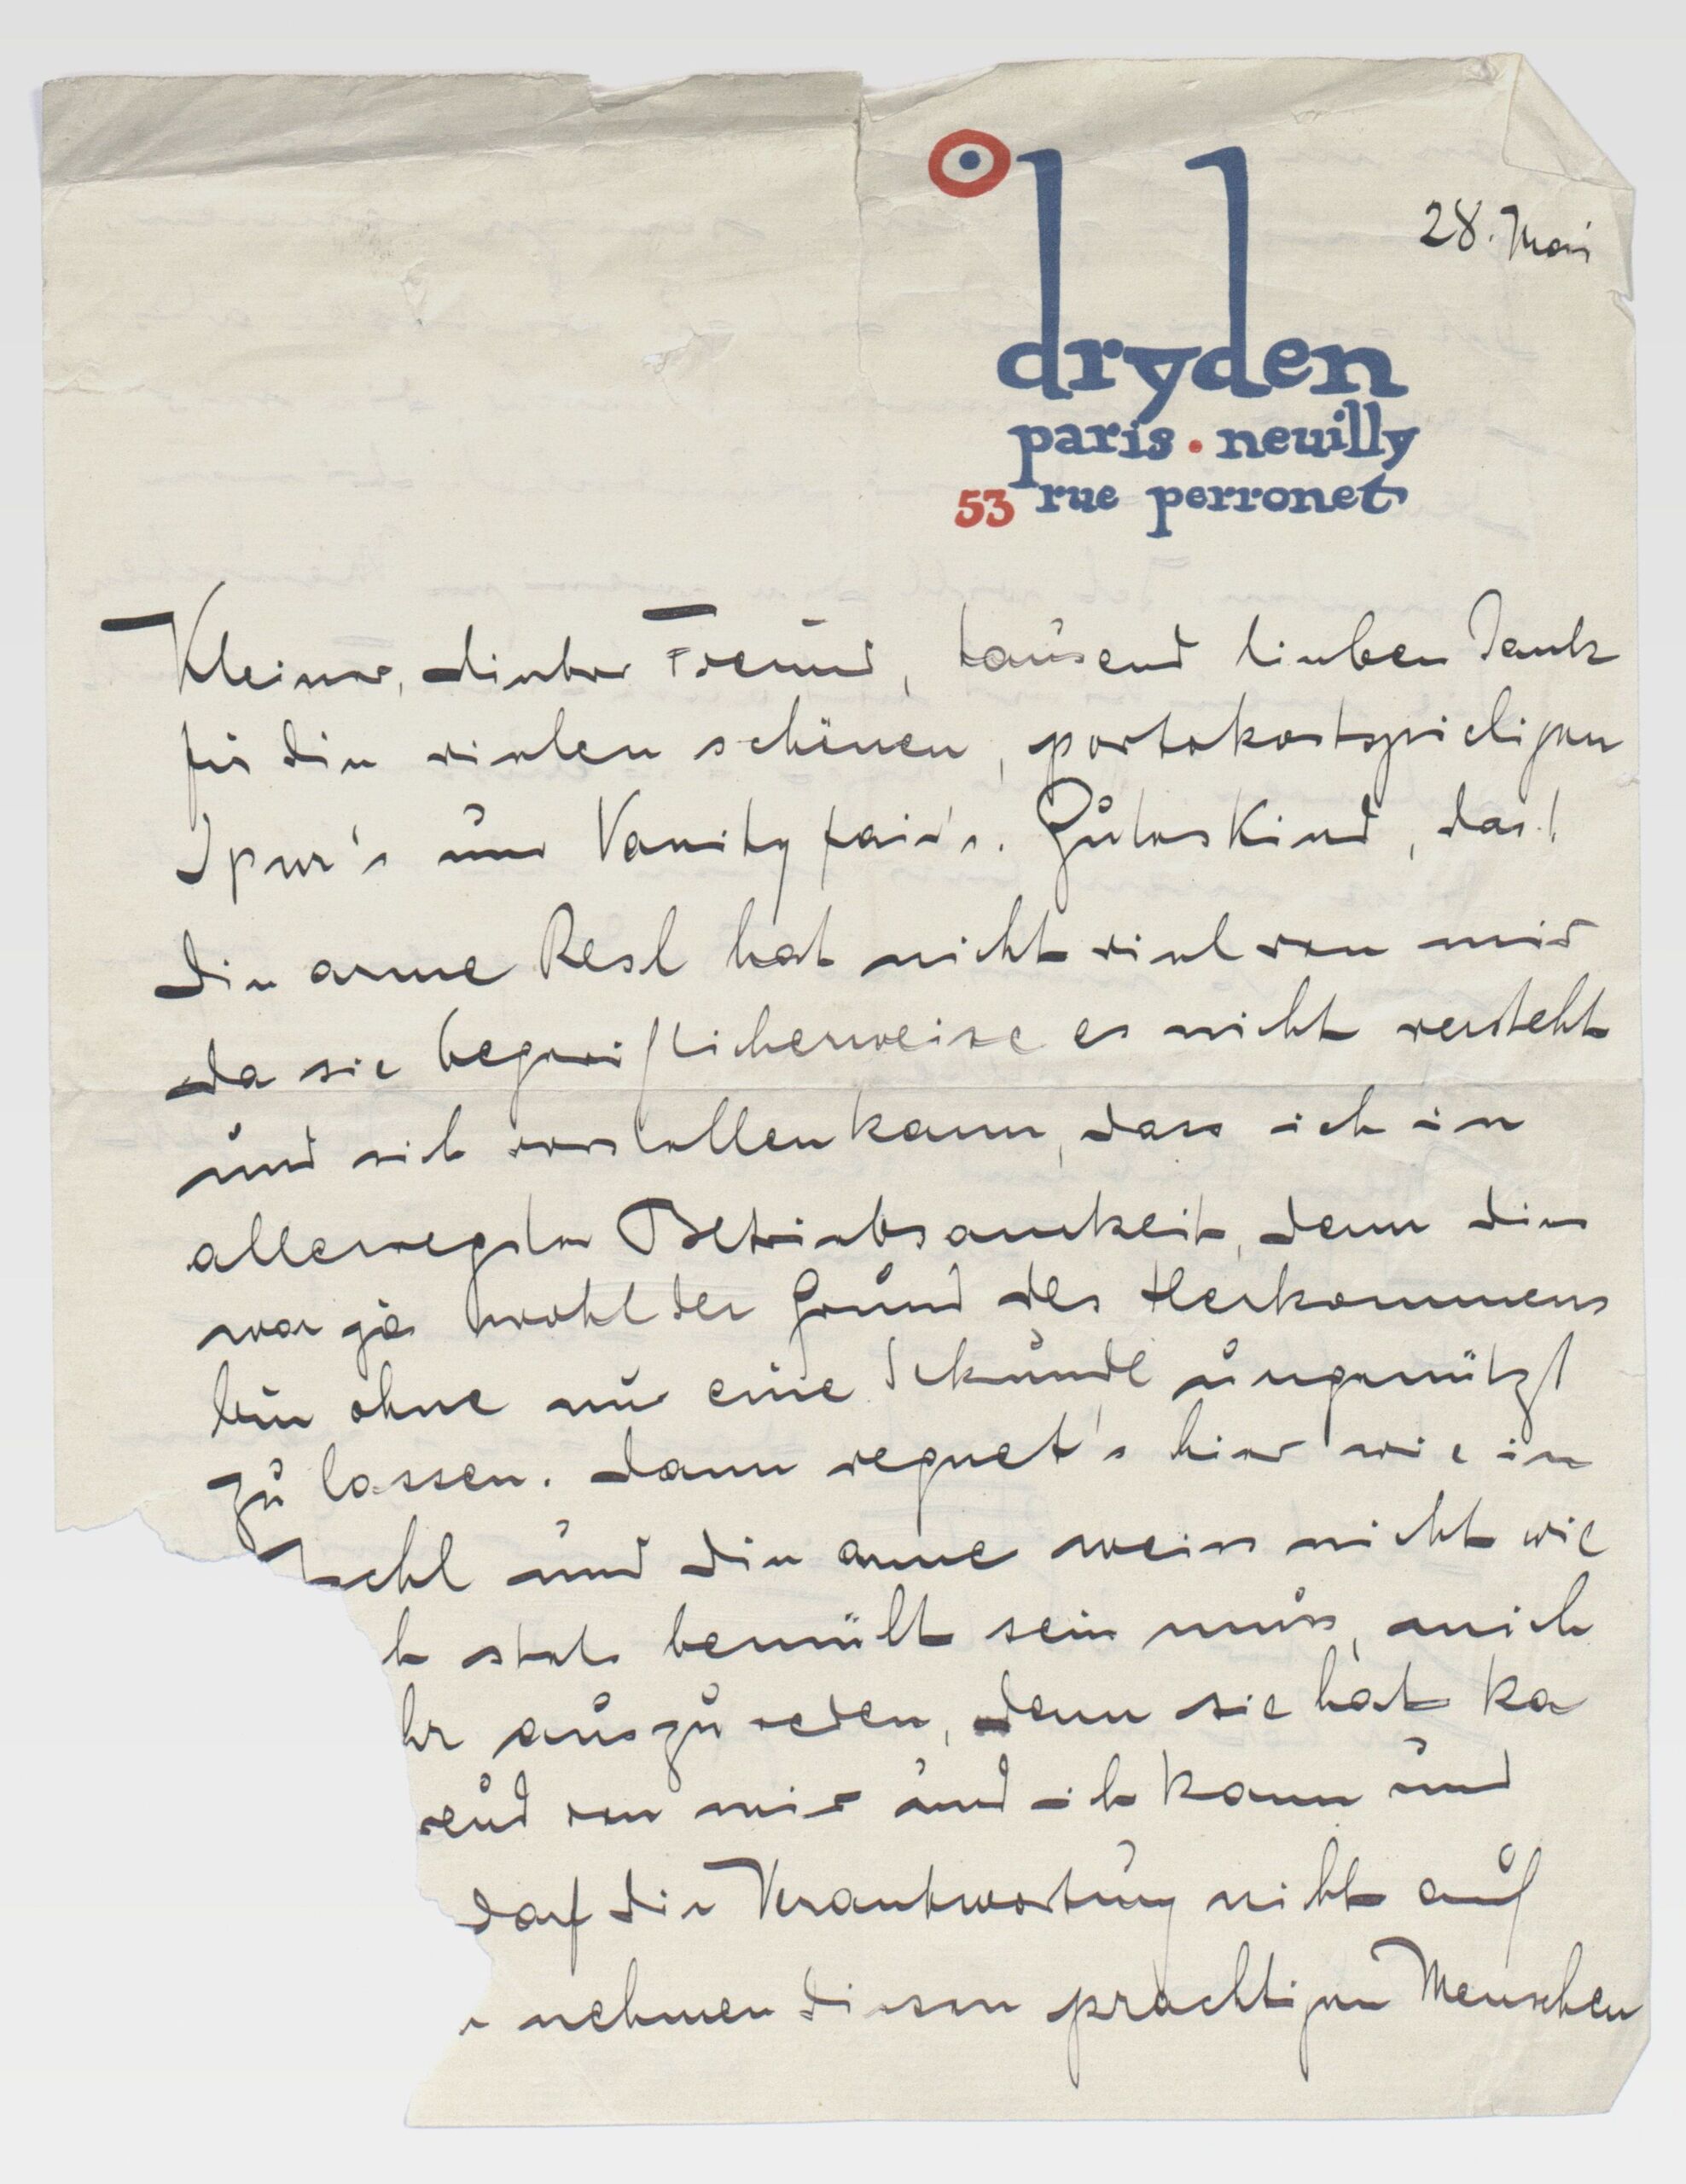 28. Mai
dryden
paris • neuilly
53 rue perronet
Kleiner, lieber Freund, tausend lieben Dank
für die vielen schönen, portokostspieligen
und Vanity fair's. Gutes Kind, das!
Die arme Resl hat nicht viel von mir
da sie begreiflicherweise es nicht versteht
und sich vorstellen kann, dass ich in
allerregster Betriebsamkeit, denn dies
war ja wohl der Grund des Herkommens
bin ohne nur eine Sekunde ungenützt
zu lassen. Dann regnet's hier wie in
Ischl und die arme weiss nicht wie
h stets bemüht sein muss, mich
hr auszureden, denn sie hat ka
reud von mir und ich kann und
darf die Verantwortung nicht auf
nehmen diesen prachtigen Menschen